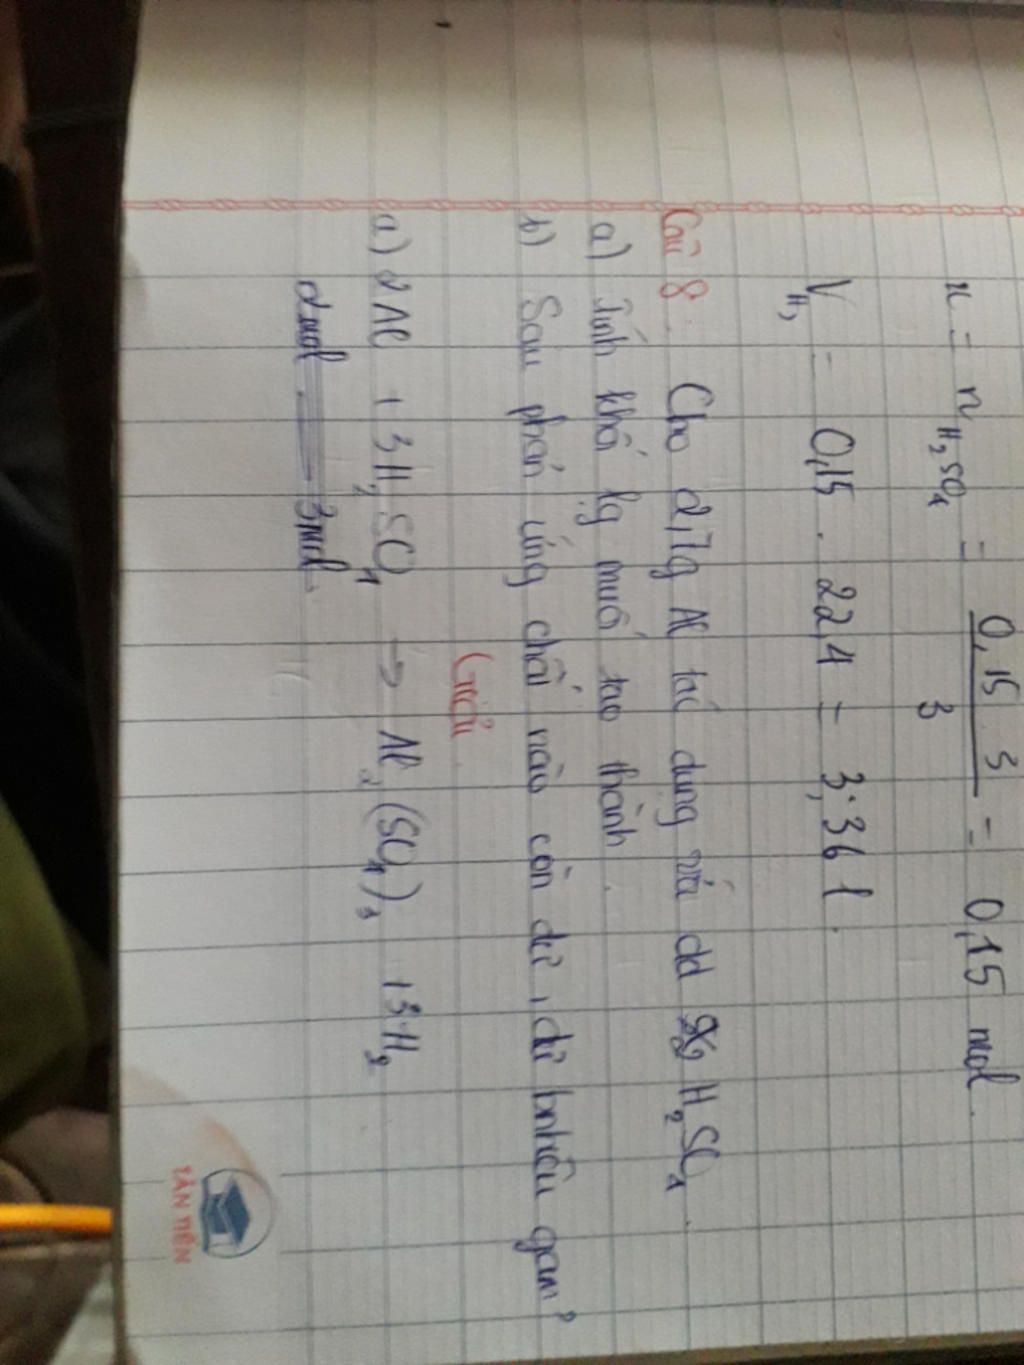 x = nH₂SO₄ = 0,15 . 3 / 3 = 0,15 mol.
VH₂ = 0,15 . 22,4 = 3,36 l.
Câu 8. Cho 2,7g Al tác dụng với dd H₂SO₄.
a) Tính khối lg muối tạo thành.
b) Sau phản ứng chất nào còn dư, dư bnhiêu gam?
Giải
a) 2Al + 3H₂SO₄ → Al₂(SO₄)₃ + 3H₂
2mol 3mol.
TÂN TIẾN